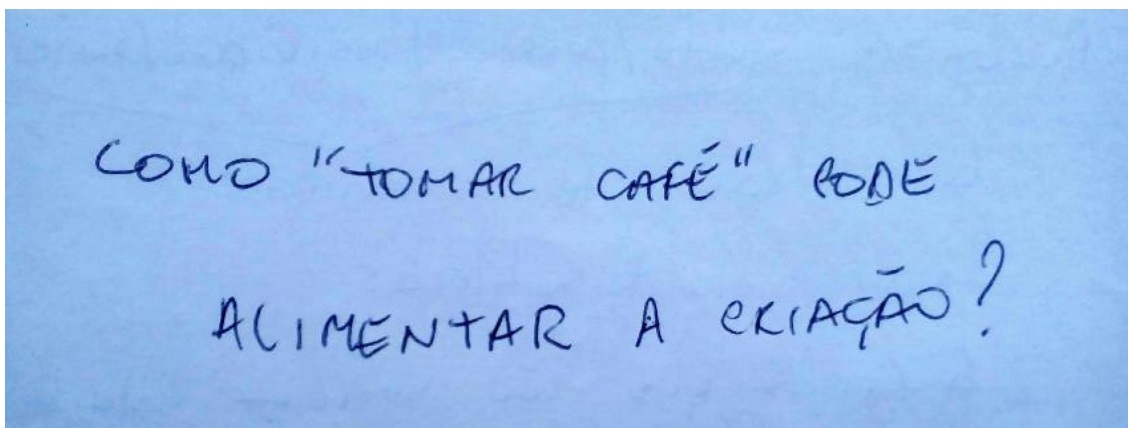 COMO "TOMAR CAFÉ" PODE
ALIMENTAR A CRIAÇÃO?